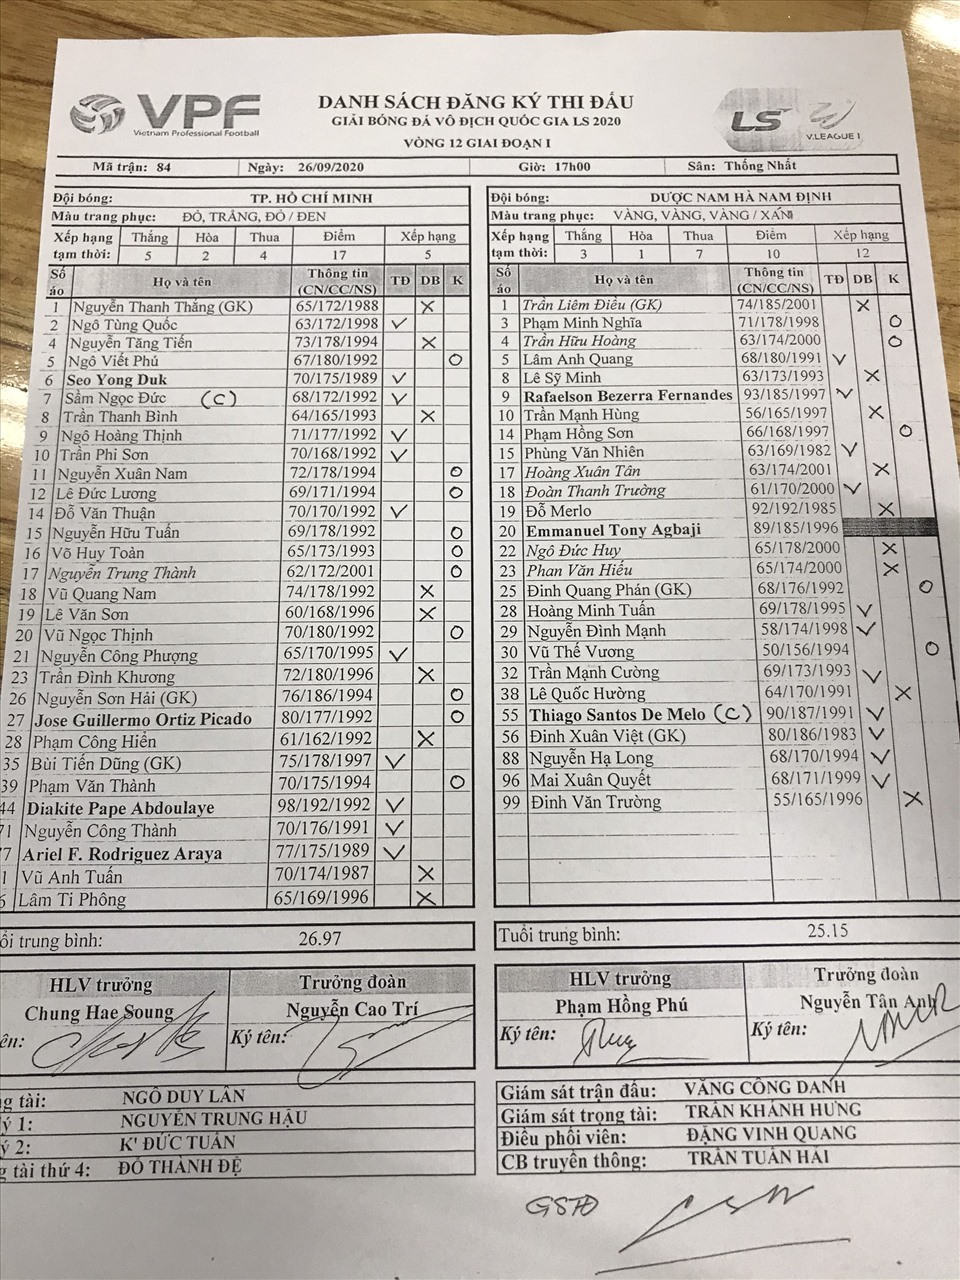 VPF
Vietnam Professional Football
DANH SÁCH ĐĂNG KÝ THI ĐẤU
GIẢI BÓNG ĐÁ VÔ ĐỊCH QUỐC GIA LS 2020
VÒNG 12 GIAI ĐOẠN I
LS V.LEAGUE 1
Mã trận: 84 Ngày: 26/09/2020 Giờ: 17h00 Sân: Thống Nhất
Đội bóng: TP. HỒ CHÍ MINH
Màu trang phục: ĐỎ, TRẮNG, ĐỎ / ĐEN
Xếp hạng tạm thời: Thắng Hòa Thua Điểm Xếp hạng
5 2 4 17 5
Số áo Họ và tên Thông tin (CN/CC/NS) TĐ DB K
1 Nguyễn Thanh Thắng (GK) 65/172/1988 X
2 Ngô Tùng Quốc 63/172/1998 ✓
4 Nguyễn Tăng Tiến 73/178/1994 X
5 Ngô Viết Phú 67/180/1992 O
6 Seo Yong Duk 70/175/1989 ✓
7 Sầm Ngọc Đức (C) 68/172/1992 ✓
8 Trần Thanh Bình 64/165/1993 X
9 Ngô Hoàng Thịnh 71/177/1992 ✓
10 Trần Phi Sơn 70/168/1992 ✓
11 Nguyễn Xuân Nam 72/178/1994 O
12 Lê Đức Lương 69/171/1994 O
14 Đỗ Văn Thuận 70/170/1992 ✓
15 Nguyễn Hữu Tuấn 69/178/1992 O
16 Võ Huy Toàn 65/173/1993 O
17 Nguyễn Trung Thành 62/172/2001 O
18 Vũ Quang Nam 74/178/1992 X
19 Lê Văn Sơn 60/168/1996 X
20 Vũ Ngọc Thịnh 70/180/1992 O
21 Nguyễn Công Phượng 65/170/1995 ✓
23 Trần Đình Khương 72/180/1996 X
26 Nguyễn Sơn Hải (GK) 76/186/1994 O
27 Jose Guillermo Ortiz Picado 80/177/1992 O
28 Phạm Công Hiển 61/162/1992 X
35 Bùi Tiến Dũng (GK) 75/178/1997 ✓
39 Phạm Văn Thành 70/175/1994 O
44 Diakite Pape Abdoulaye 98/192/1992 ✓
71 Nguyễn Công Thành 70/176/1991 ✓
7 Ariel F. Rodriguez Araya 77/175/1989 ✓
1 Vũ Anh Tuấn 70/174/1987 X
6 Lâm Ti Phông 65/169/1996 X
ổi trung bình: 26.97
HLV trưởng Trưởng đoàn
Chung Hae Soung Nguyễn Cao Trí
ên: Ký tên:
g tài: NGÔ DUY LÂN
ý 1: NGUYỄN TRUNG HẬU
ý 2: K' ĐỨC TUÂN
g tài thứ 4: ĐỖ THÀNH ĐỆ
Đội bóng: DƯỢC NAM HÀ NAM ĐỊNH
Màu trang phục: VÀNG, VÀNG, VÀNG / XANH
Xếp hạng tạm thời: Thắng Hòa Thua Điểm Xếp hạng
3 1 7 10 12
Số áo Họ và tên Thông tin (CN/CC/NS) TĐ DB K
1 Trần Liêm Điều (GK) 74/185/2001 X
3 Phạm Minh Nghĩa 71/178/1998 O
4 Trần Hữu Hoàng 63/174/2000 O
5 Lâm Anh Quang 68/180/1991 ✓
8 Lê Sỹ Minh 63/173/1993 X
9 Rafaelson Bezerra Fernandes 93/185/1997 ✓
10 Trần Mạnh Hùng 56/165/1997 X
14 Phạm Hồng Sơn 66/168/1997 O
15 Phùng Văn Nhiên 63/169/1982 ✓
17 Hoàng Xuân Tân 63/174/2001 X
18 Đoàn Thanh Trường 61/170/2000 ✓
19 Đỗ Merlo 92/192/1985 X
20 Emmanuel Tony Agbaji 89/185/1996
22 Ngô Đức Huy 65/178/2000 X
23 Phan Văn Hiếu 65/174/2000 X
25 Đinh Quang Phán (GK) 68/176/1992 O
28 Hoàng Minh Tuấn 69/178/1995 ✓
29 Nguyễn Đình Mạnh 58/174/1998 ✓
30 Vũ Thế Vương 50/156/1994 O
32 Trần Mạnh Cường 69/173/1993 ✓
38 Lê Quốc Hường 64/170/1991 X
55 Thiago Santos De Melo (C) 90/187/1991 ✓
56 Đinh Xuân Việt (GK) 80/186/1983 ✓
88 Nguyễn Hạ Long 68/170/1994 ✓
96 Mai Xuân Quyết 68/171/1999 ✓
99 Đinh Văn Trường 55/165/1996 X
Tuổi trung bình: 25.15
HLV trưởng Trưởng đoàn
Phạm Hồng Phú Nguyễn Tân Anh
Ký tên: Ký tên:
Giám sát trận đấu: VĂNG CÔNG DANH
Giám sát trọng tài: TRẦN KHÁNH HƯNG
Điều phối viên: ĐẶNG VINH QUANG
CB truyền thông: TRẦN TUẤN HẢI
GSTĐ